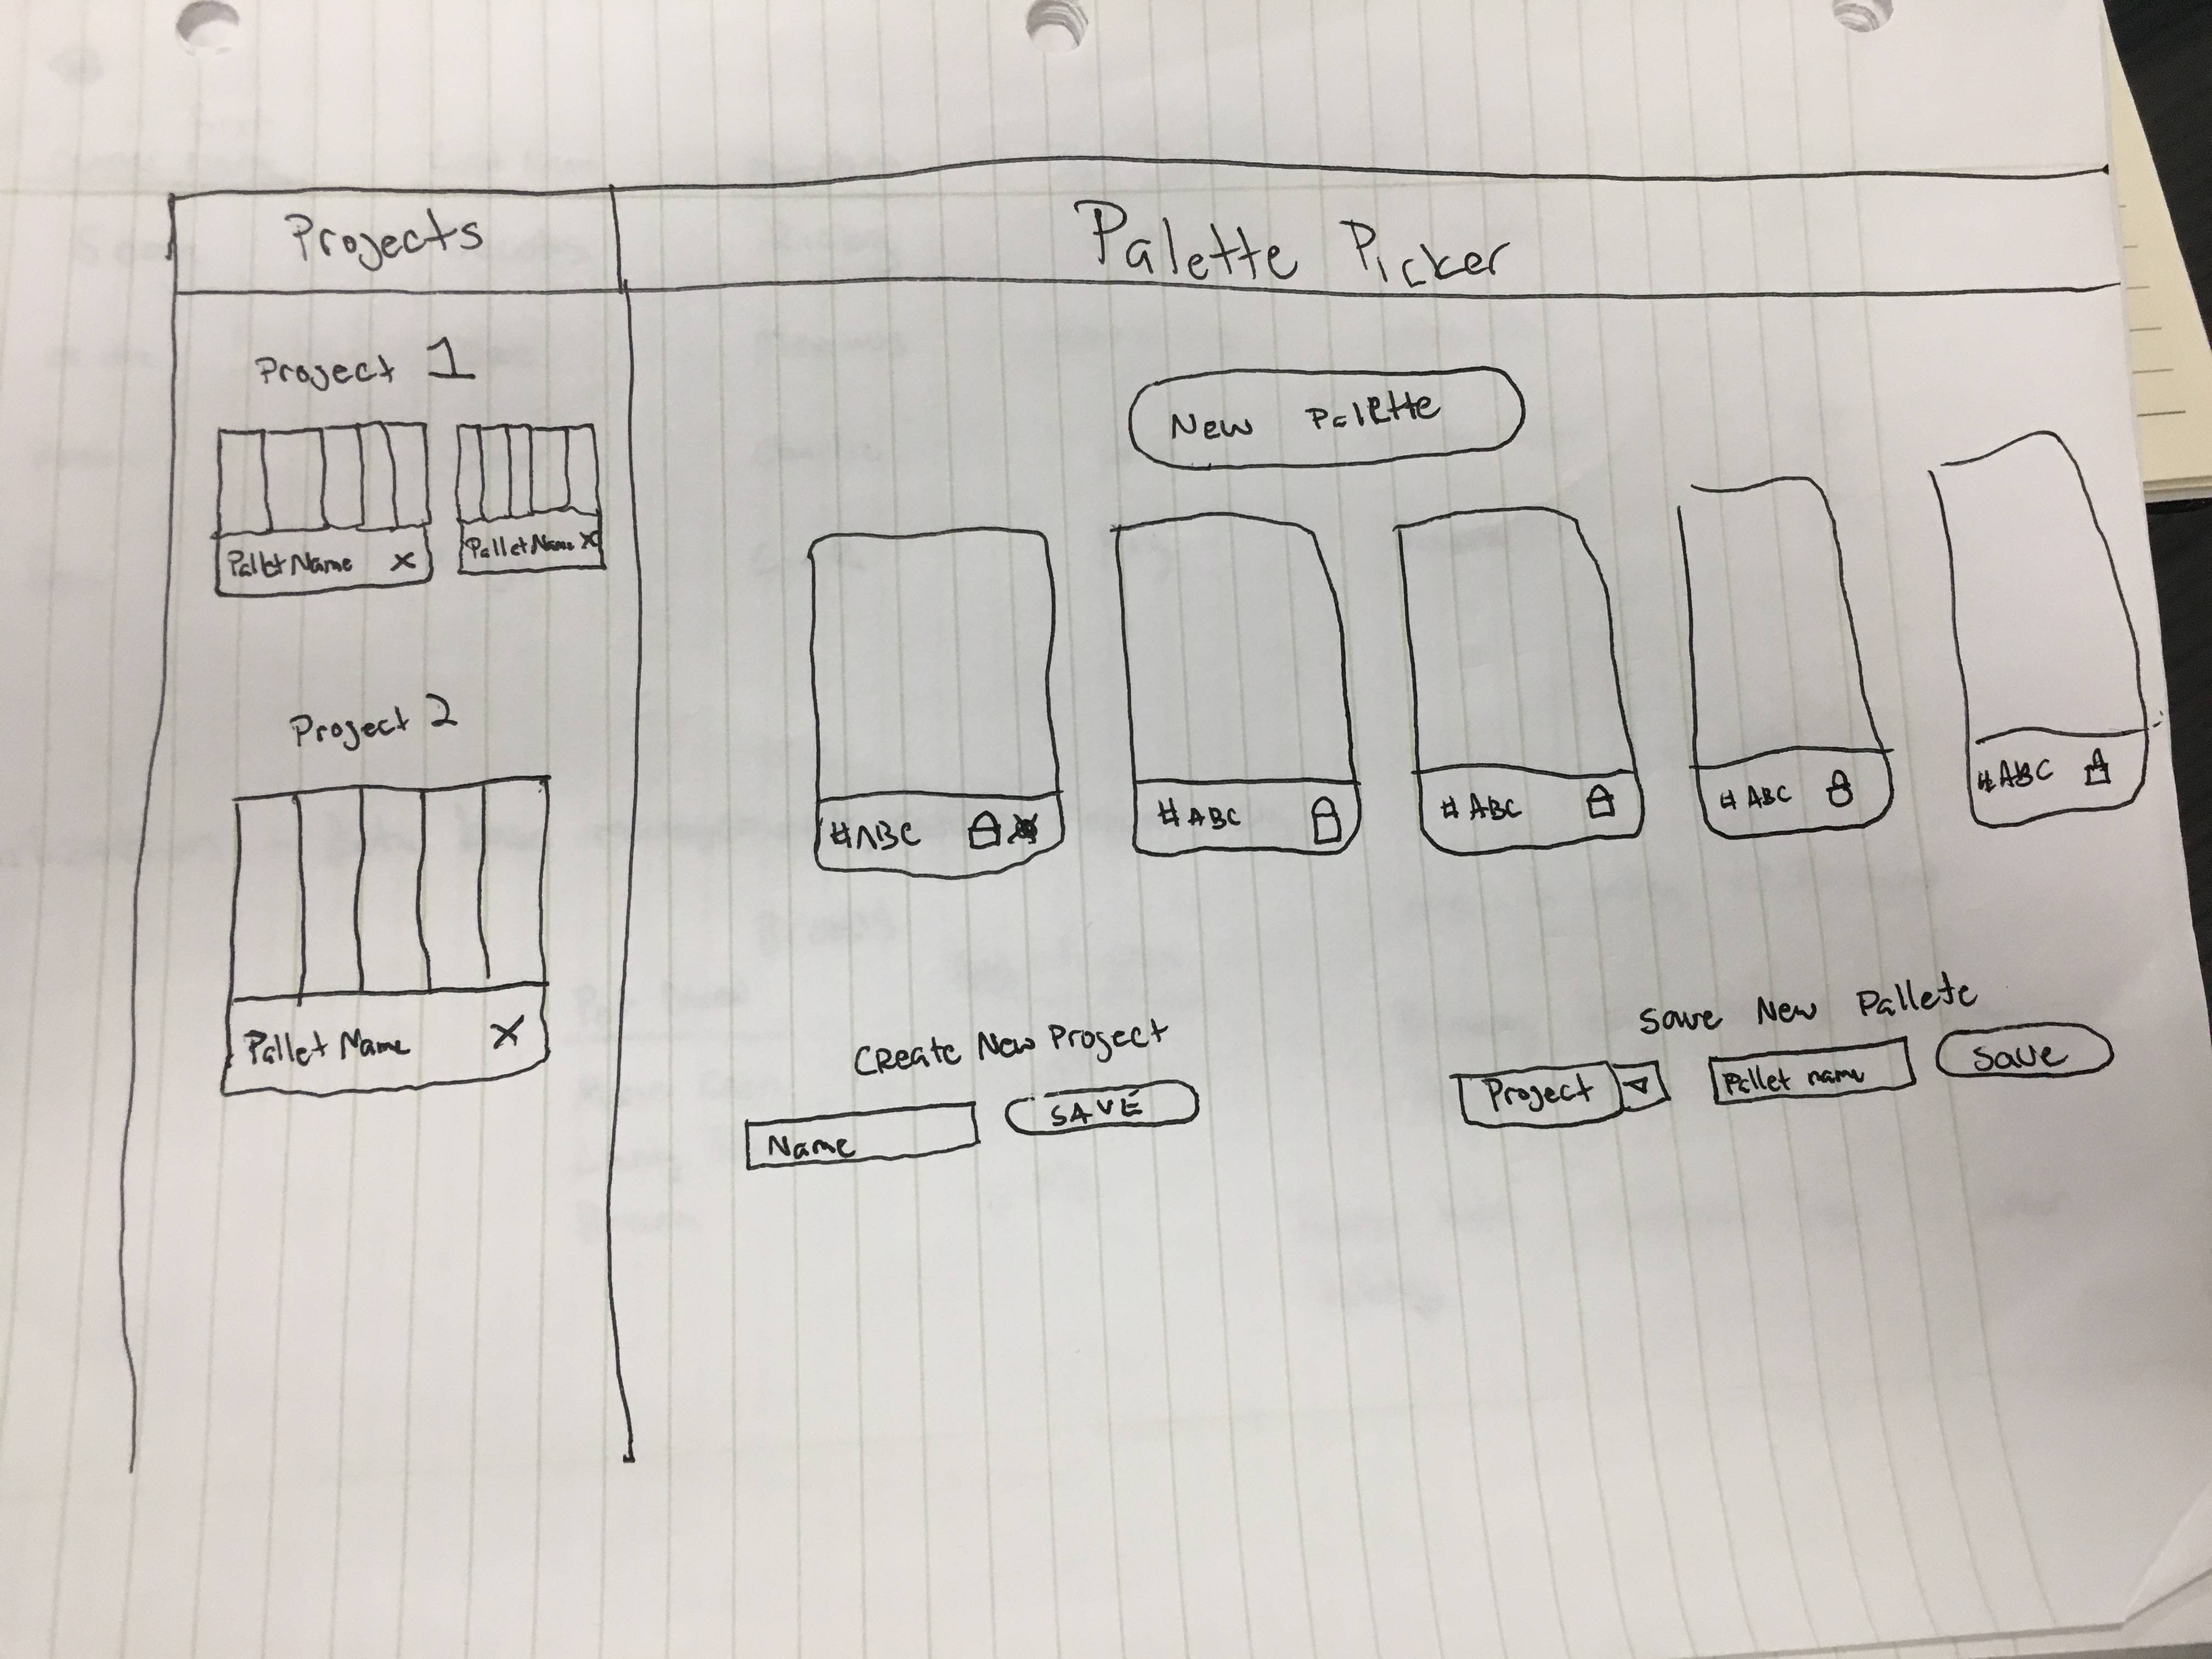 Projects
Palette Picker
Project 1
Pallet Name X
Pallet Name X
Project 2
Pallet Name X
New Palette
#ABC
#ABC
#ABC
#ABC
#ABC
Create New Project
Name
SAVE
Save New Pallete
Project
Pallet name
Save